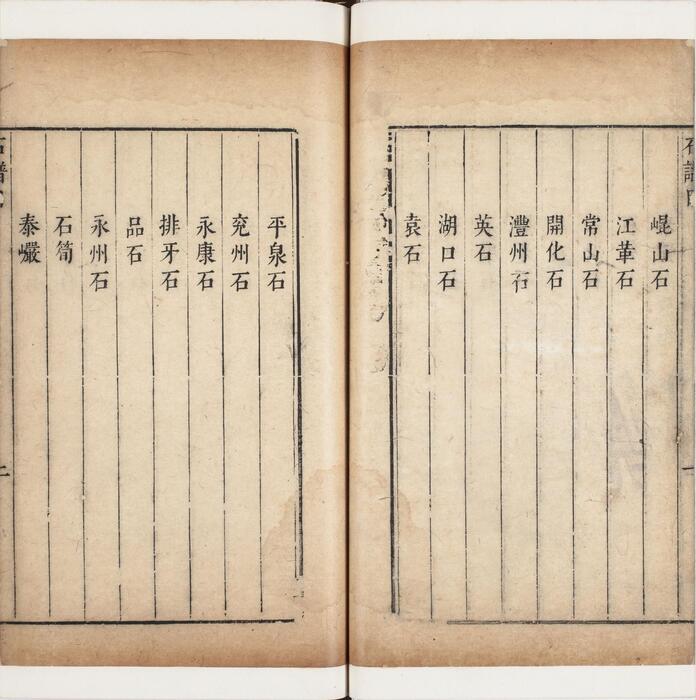 崐山石
江華石
常山石
開化石
澧州石
英石
湖口石
袁石
平泉石
兖州石
永康石
排牙石
品石
永州石
石筍
泰巖